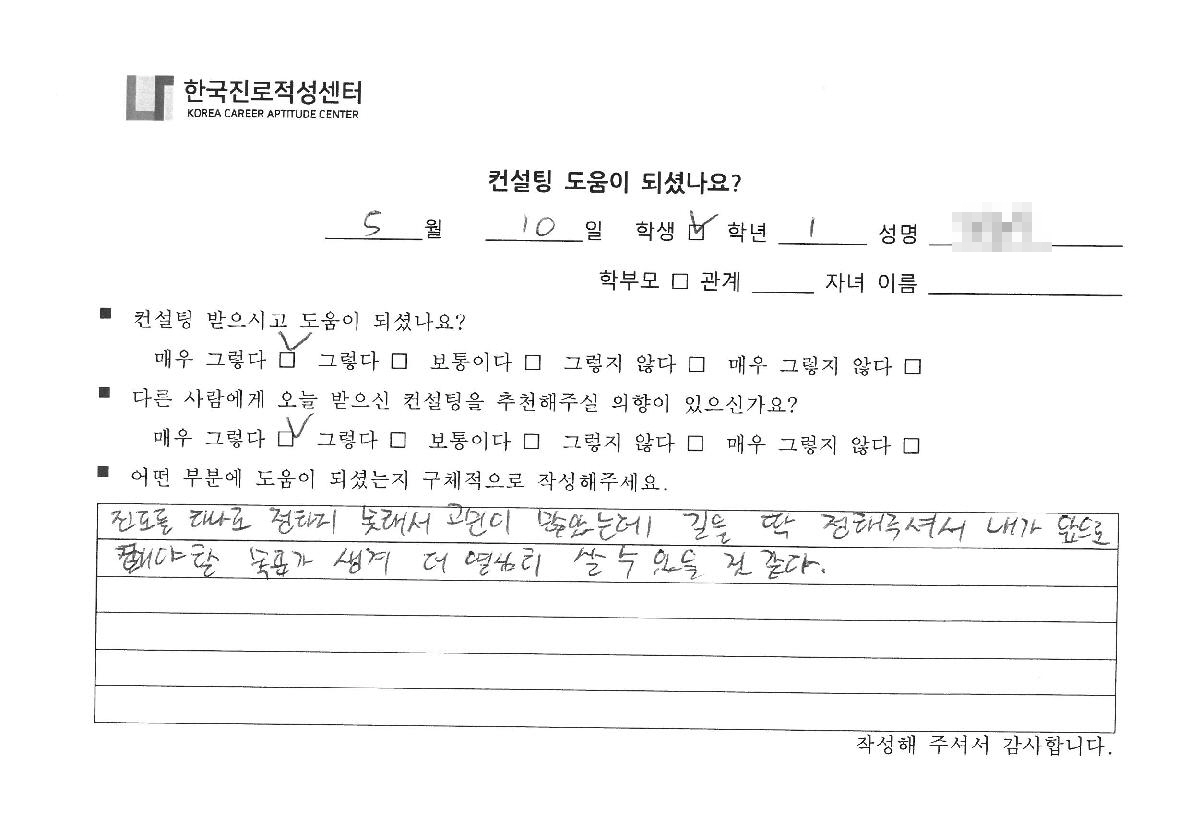 한국진로적성센터
KOREA CAREER APTITUDE CENTER
컨설팅 도움이 되셨나요?
5월 10일 학생 ☑ 학년 1 성명
학부모 □ 관계 자녀 이름
■ 컨설팅 받으시고 도움이 되셨나요?
매우 그렇다 ☑ 그렇다 □ 보통이다 □ 그렇지 않다 □ 매우 그렇지 않다 □
■ 다른 사람에게 오늘 받으신 컨설팅을 추천해주실 의향이 있으신가요?
매우 그렇다 ☑ 그렇다 □ 보통이다 □ 그렇지 않다 □ 매우 그렇지 않다 □
■ 어떤 부분에 도움이 되셨는지 구체적으로 작성해주세요.
진로를 하나로 정하지 못해서 고민이 많았는데 길을 딱 정해주셔서 내가 앞으로
해야할 목표가 생겨 더 열심히 살 수 있을 것 같다.
작성해 주셔서 감사합니다.